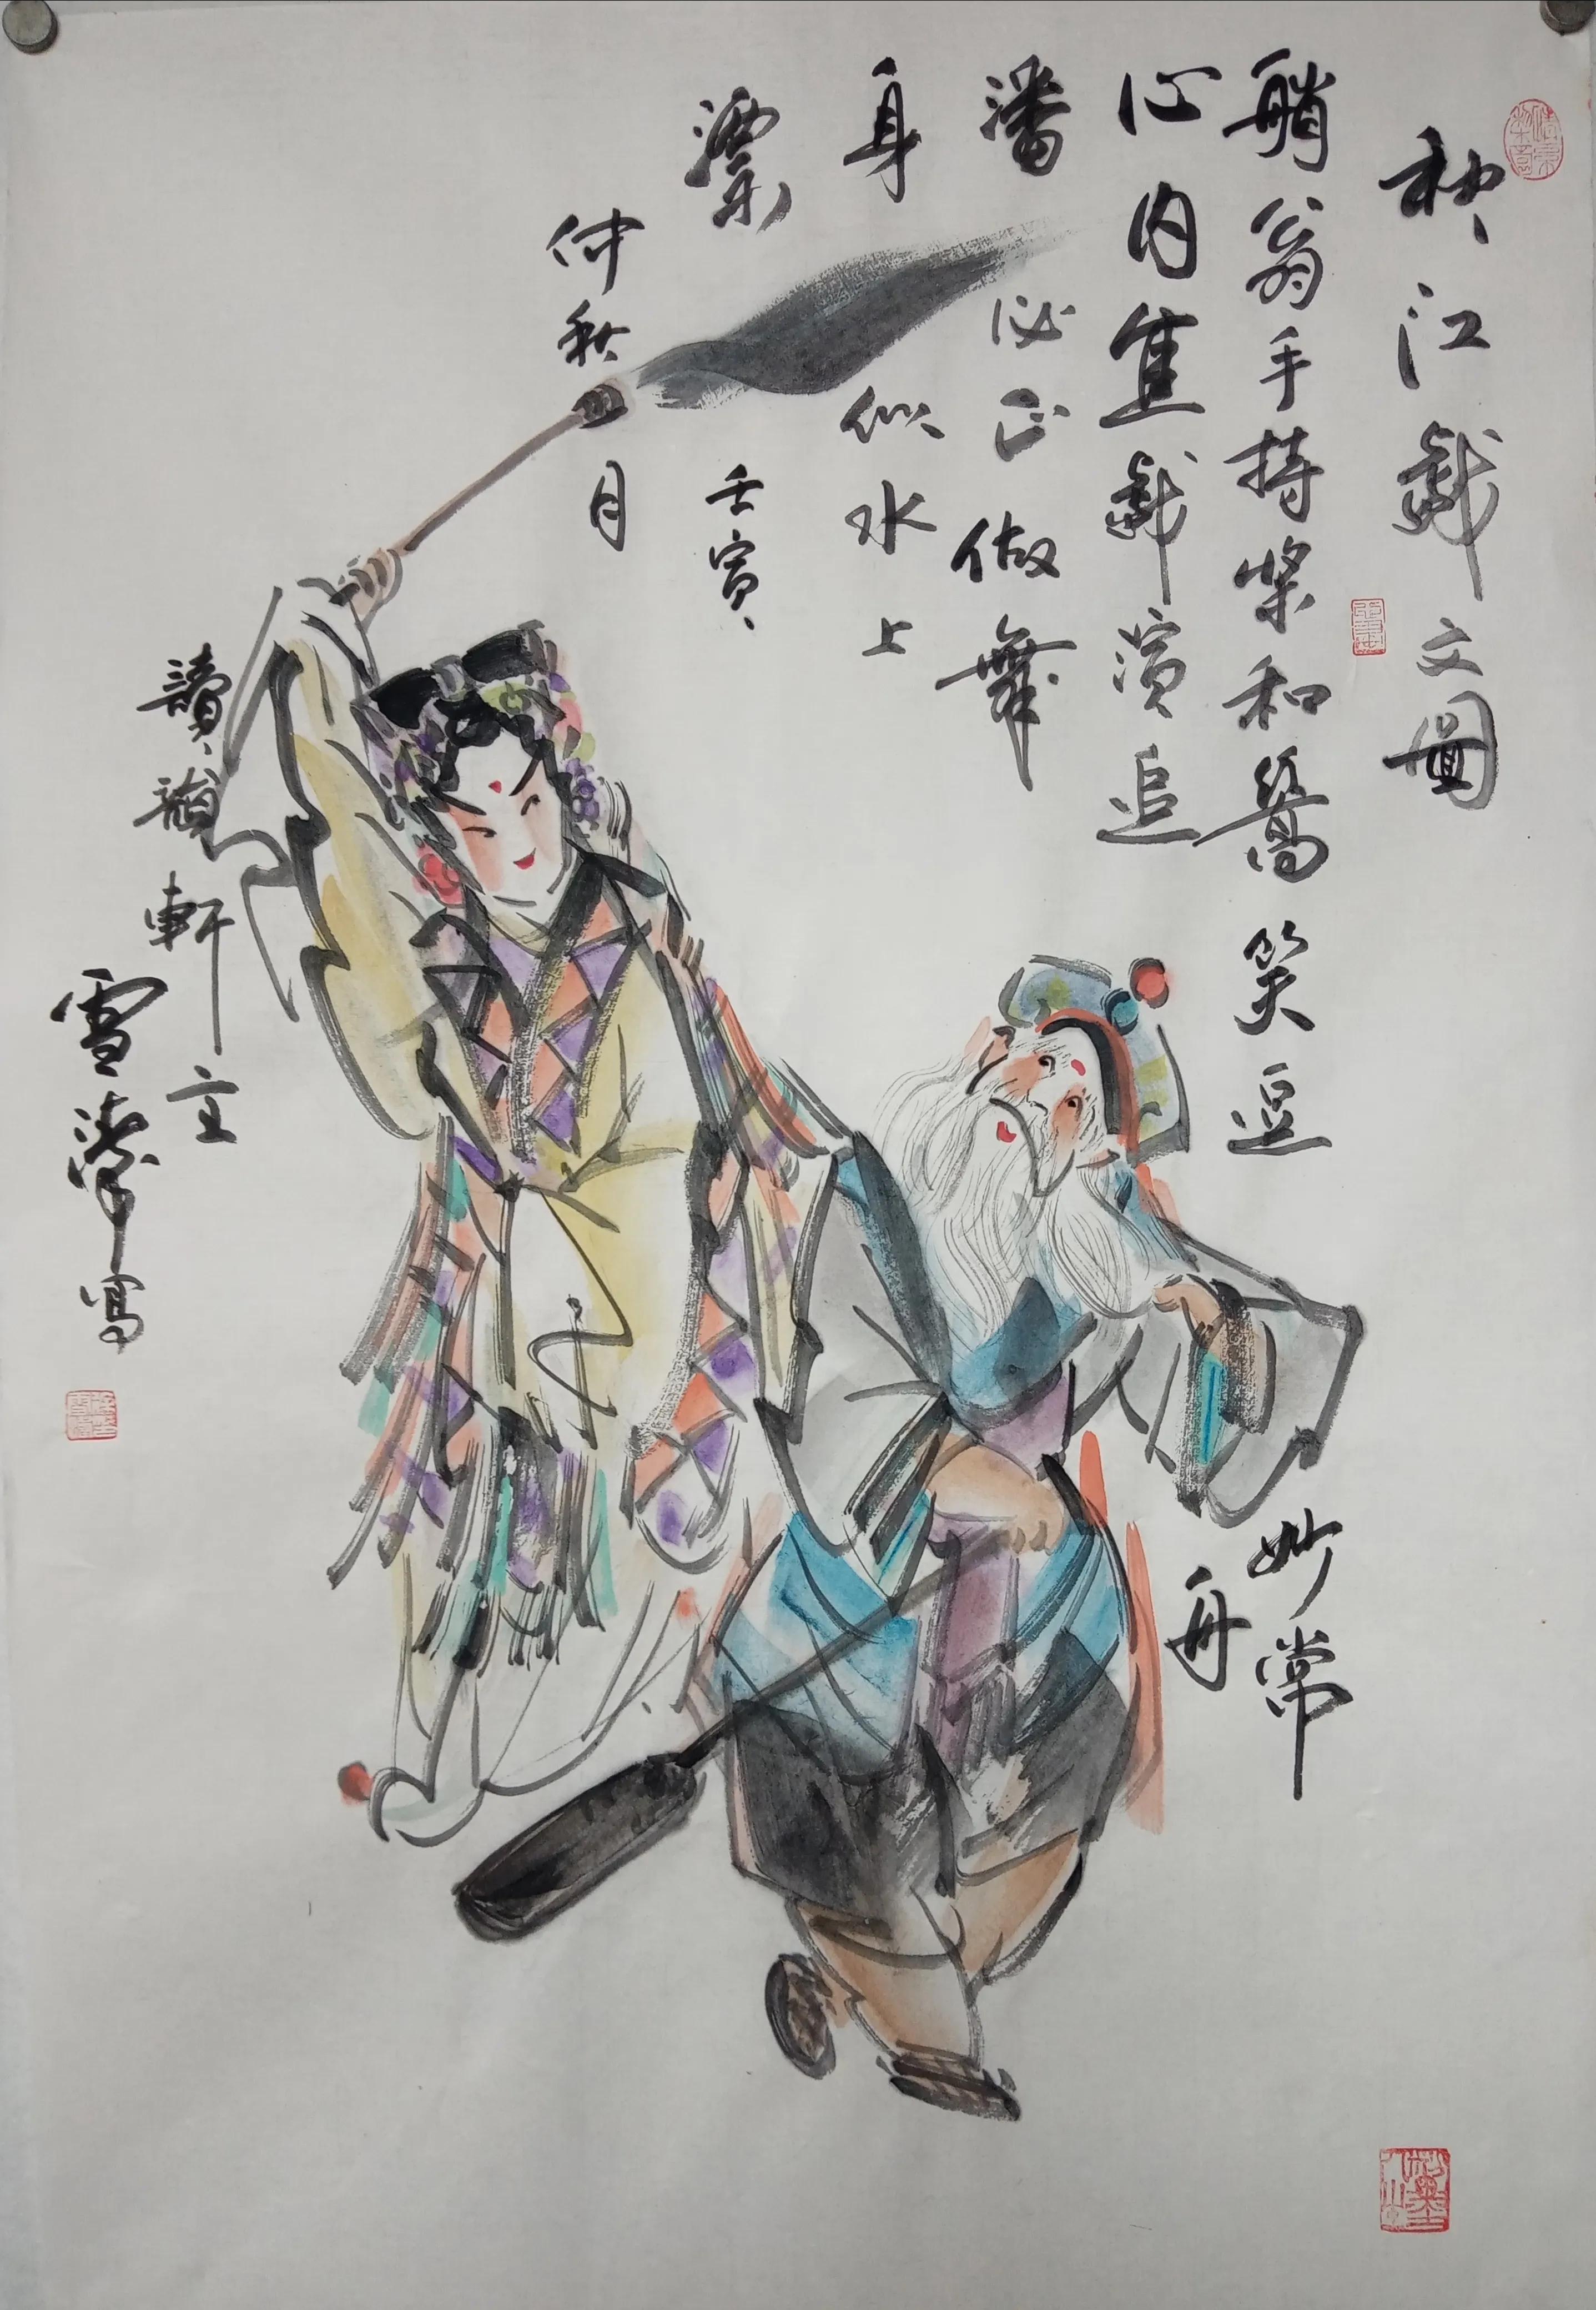 秋江戲文圖
艄翁手持桨和篙笑逗妙常
心内焦戲演追舟
潘必正做舞
身似水上
漂 壬寅
仲秋月
讀軒主
雪寫